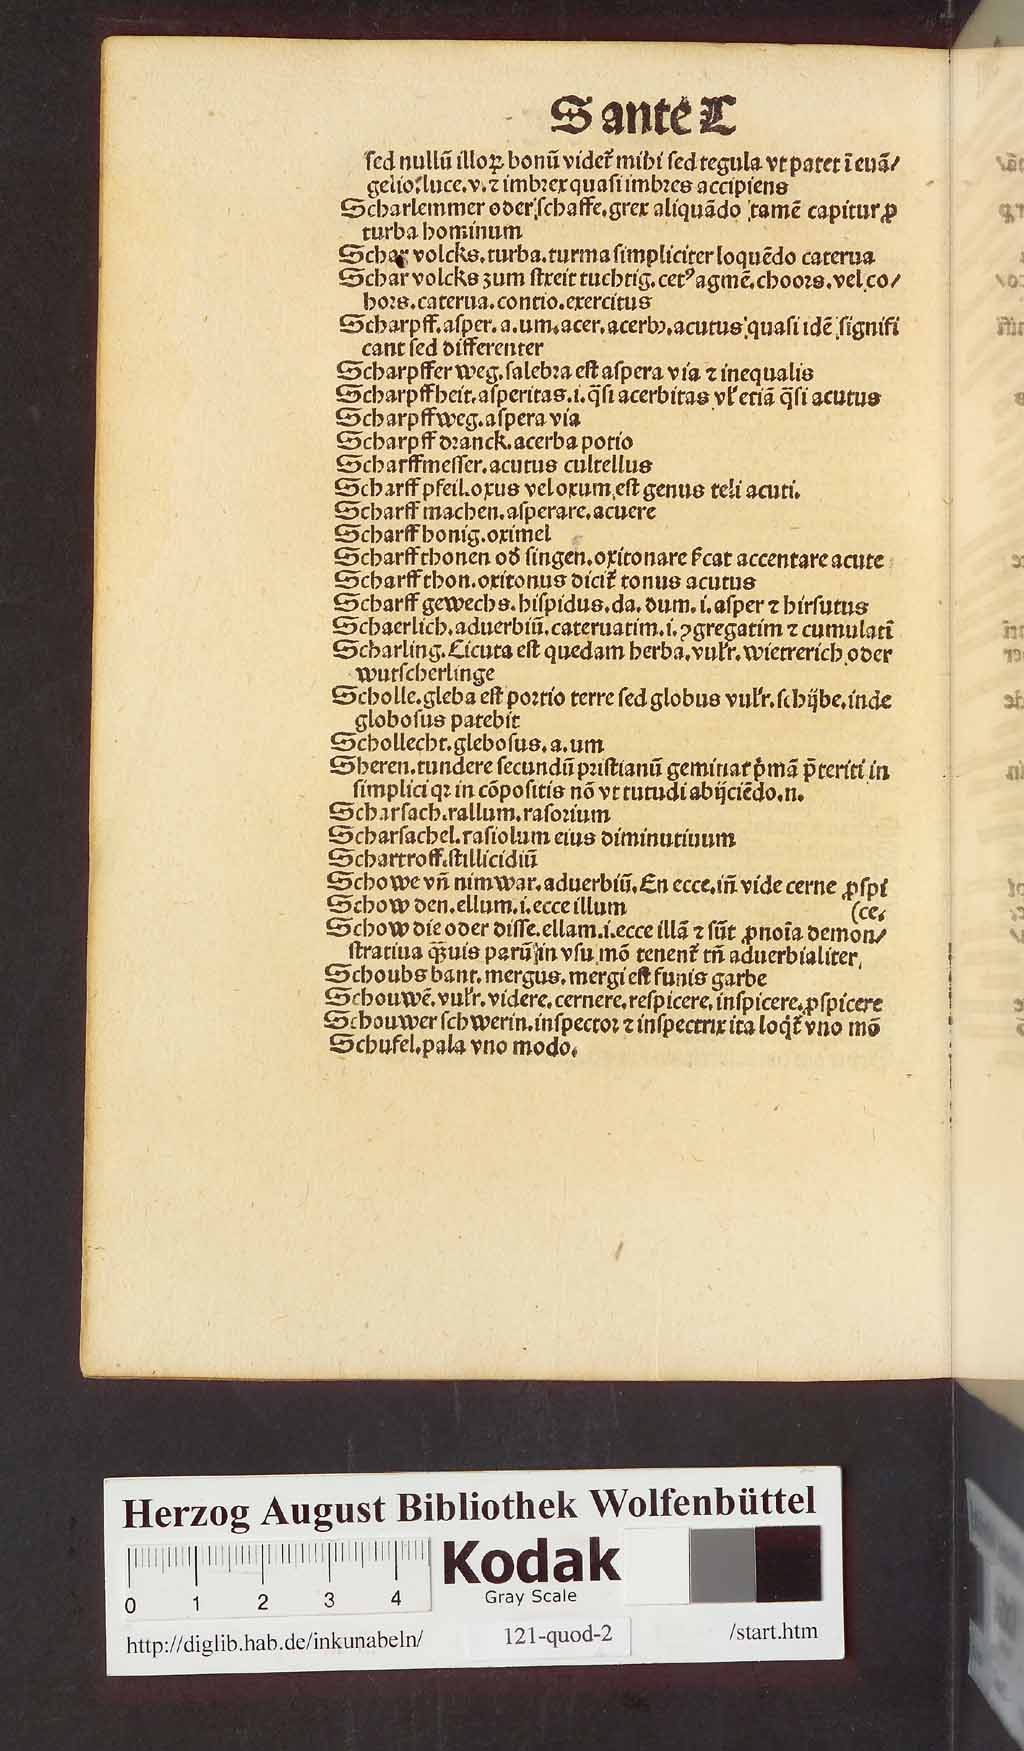 S ante C
sed nullū illoꝝ bonū videt᷑ mihi sed tegula vt patet ī euā/
gelio. luce. v. ⁊ imbrex quasi imbres accipiens
Scharlemmer oder schaffe. grex aliquādo tamē capitur ꝓ
turba hominum
Schar volcks. turba. turma simpliciter loquēdo caterua
Schar volcks zum streit tuchtig. cetꝰ agmē. choors. vel co/
hors. caterua. contio. exercitus
Scharpff. asper. a. um. acer. acerbꝰ. acutus quasi idē signifi
cant sed differenter
Scharpffer weg. salebra est aspera via ⁊ inequalis
Scharpffheit. asperitas. i. q̄si acerbitas vl̓ etiā q̄si acutus
Scharpffweg. aspera via
Scharpff dranck. acerba potio
Scharffmesser. acutus cultellus
Scharff pfeil. oxus vel oxum est genus teli acuti.
Scharff machen. asperare. acuere
Scharff honig. oximel
Scharff thonen od̓ singen. oxitonare scat accentare acute
Scharff thon. oxitonus dicit᷑ tonus acutus
Scharff gewechs. hispidus. da. dum. i. asper ⁊ hirsutus
Schaerlich. aduerbiū. cateruatim. i. ꝯgregatim ⁊ cumulatī
Scharling. Cicuta est quedam herba. vul̓r. wietrerich oder
wutscherlinge
Scholle. gleba est portio terre sed globus vul̓r. schijbe. inde
globosus patebit
Schollecht. glebosus. a. um
Sheren. tundere secundū pristianū geminat p̓mā p̄teriti in
simplici qꝛ in cōpositis nō vt tutudi abijciēdo. n.
Scharsach. rallum. rasorium
Scharsachel. rasiolum eius diminutiuum
Schartroff. stillicidiū
Schowe vñ nimwar. aduerbiū. En ecce. iñ vide cerne ꝓspi
Schow den. ellum. i. ecce illum (ce.
Schow die oder disse. ellam. i. ecce illā ⁊ sūt ꝓnoīa demon/
stratiua qᷓuis parū in vsu mō tenent᷑ tñ aduerbialiter.
Schoubs bant. mergus. mergi est funis garbe
Schouwē. vul̓r. videre. cernere. respicere. inspicere. ꝓspicere
Schouwer schwerin. inspector ⁊ inspectrix ita loqt᷑ vno mō
Schufel. pala vno modo.
Herzog August Bibliothek Wolfenbüttel
0 1 2 3 4
Kodak
Gray Scale
http://diglib.hab.de/inkunabeln/ 121-quod-2 /start.htm